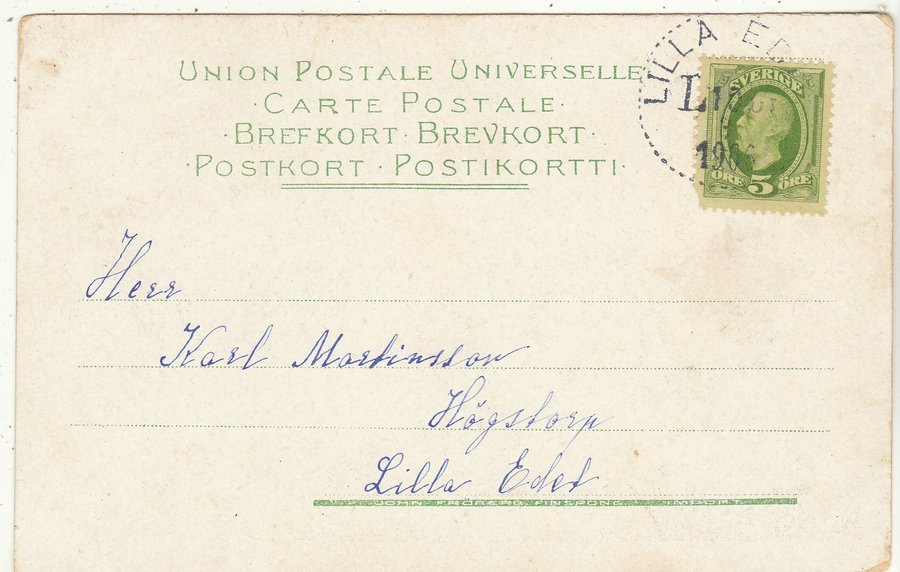 UNION POSTALE UNIVERSELLE
·CARTE POSTALE·
·BREFKORT·BREVKORT·
·POSTKORT·POSTIKORTTI·
LILLA ED
SVERIGE
ÖRE 5 ÖRE
Herr
Karl Martinsson
Högstorp
Lilla Edet
JOHN FRÖBERG, FINSPONG. IMPORT.